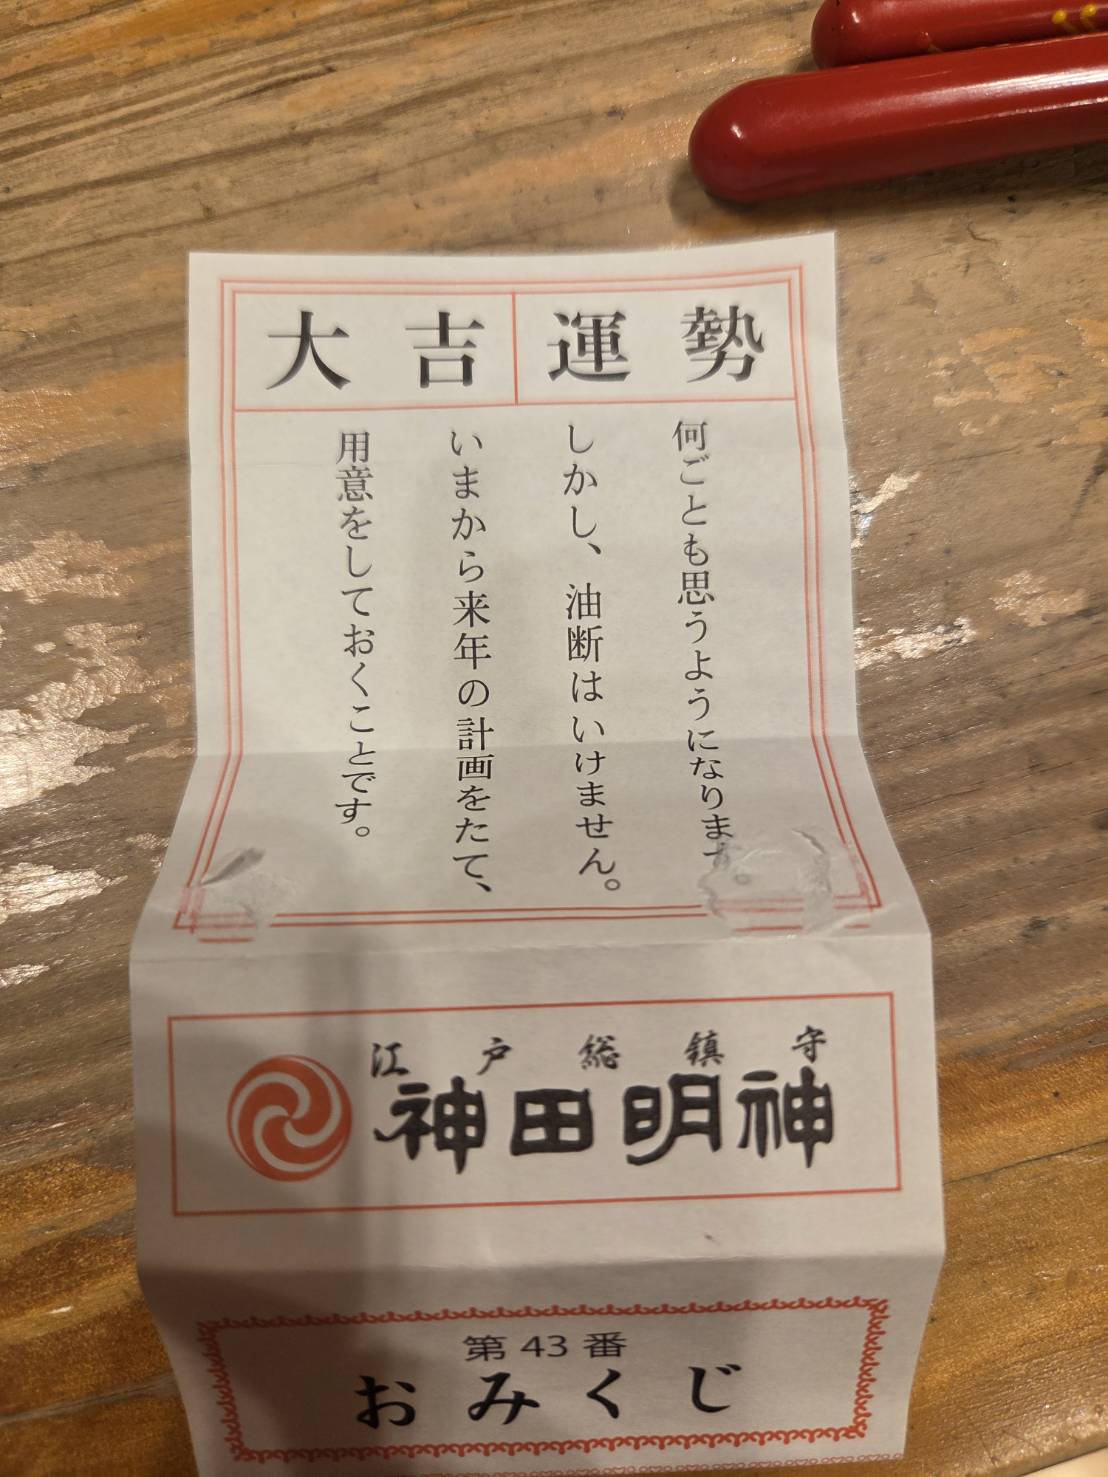 大吉 運勢
何ごとも思うようになります。
しかし、油断はいけません。
いまから来年の計画をたて、
用意をしておくことです。
江戸総鎮守
神田明神
第43番
おみくじ